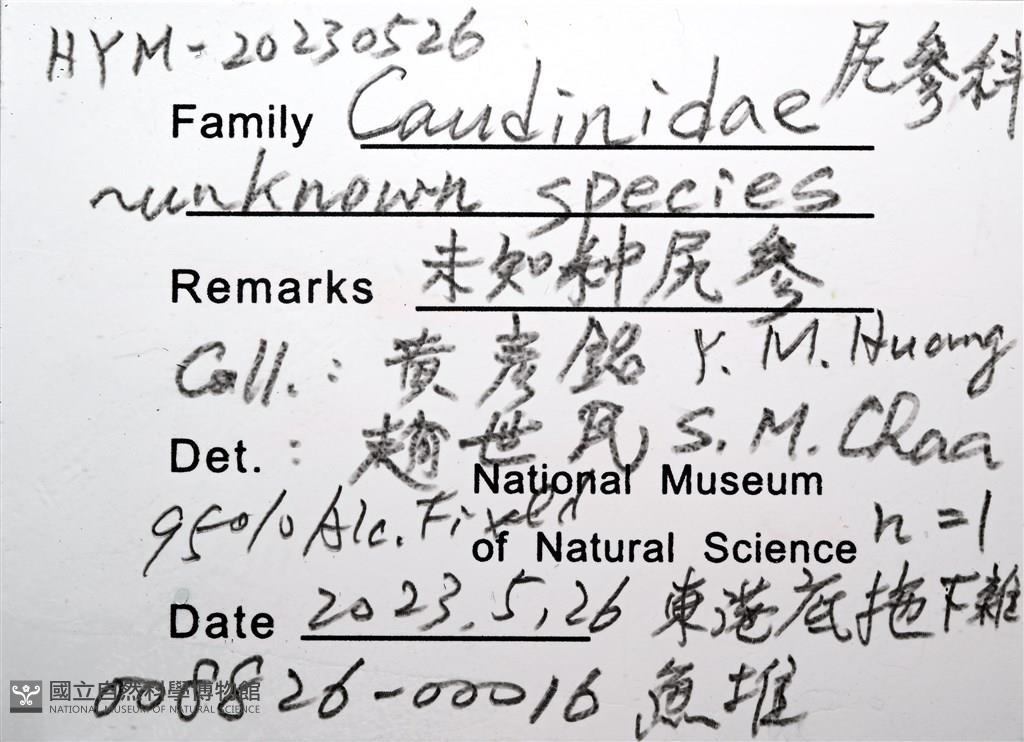 HYM-20230526 尻參科
Family Caudinidae
~unknown species
Remarks 未知种尻參
Coll.: 黃彥銘 Y. M. Huang
Det.: 趙世民 S. M. Chao
National Museum
95% Alc. Fixed n=1
of Natural Science
Date 2023.5.26 東港底拖下雜
008826-00016 魚堆
國立自然科學博物館
NATIONAL MUSEUM OF NATURAL SCIENCE